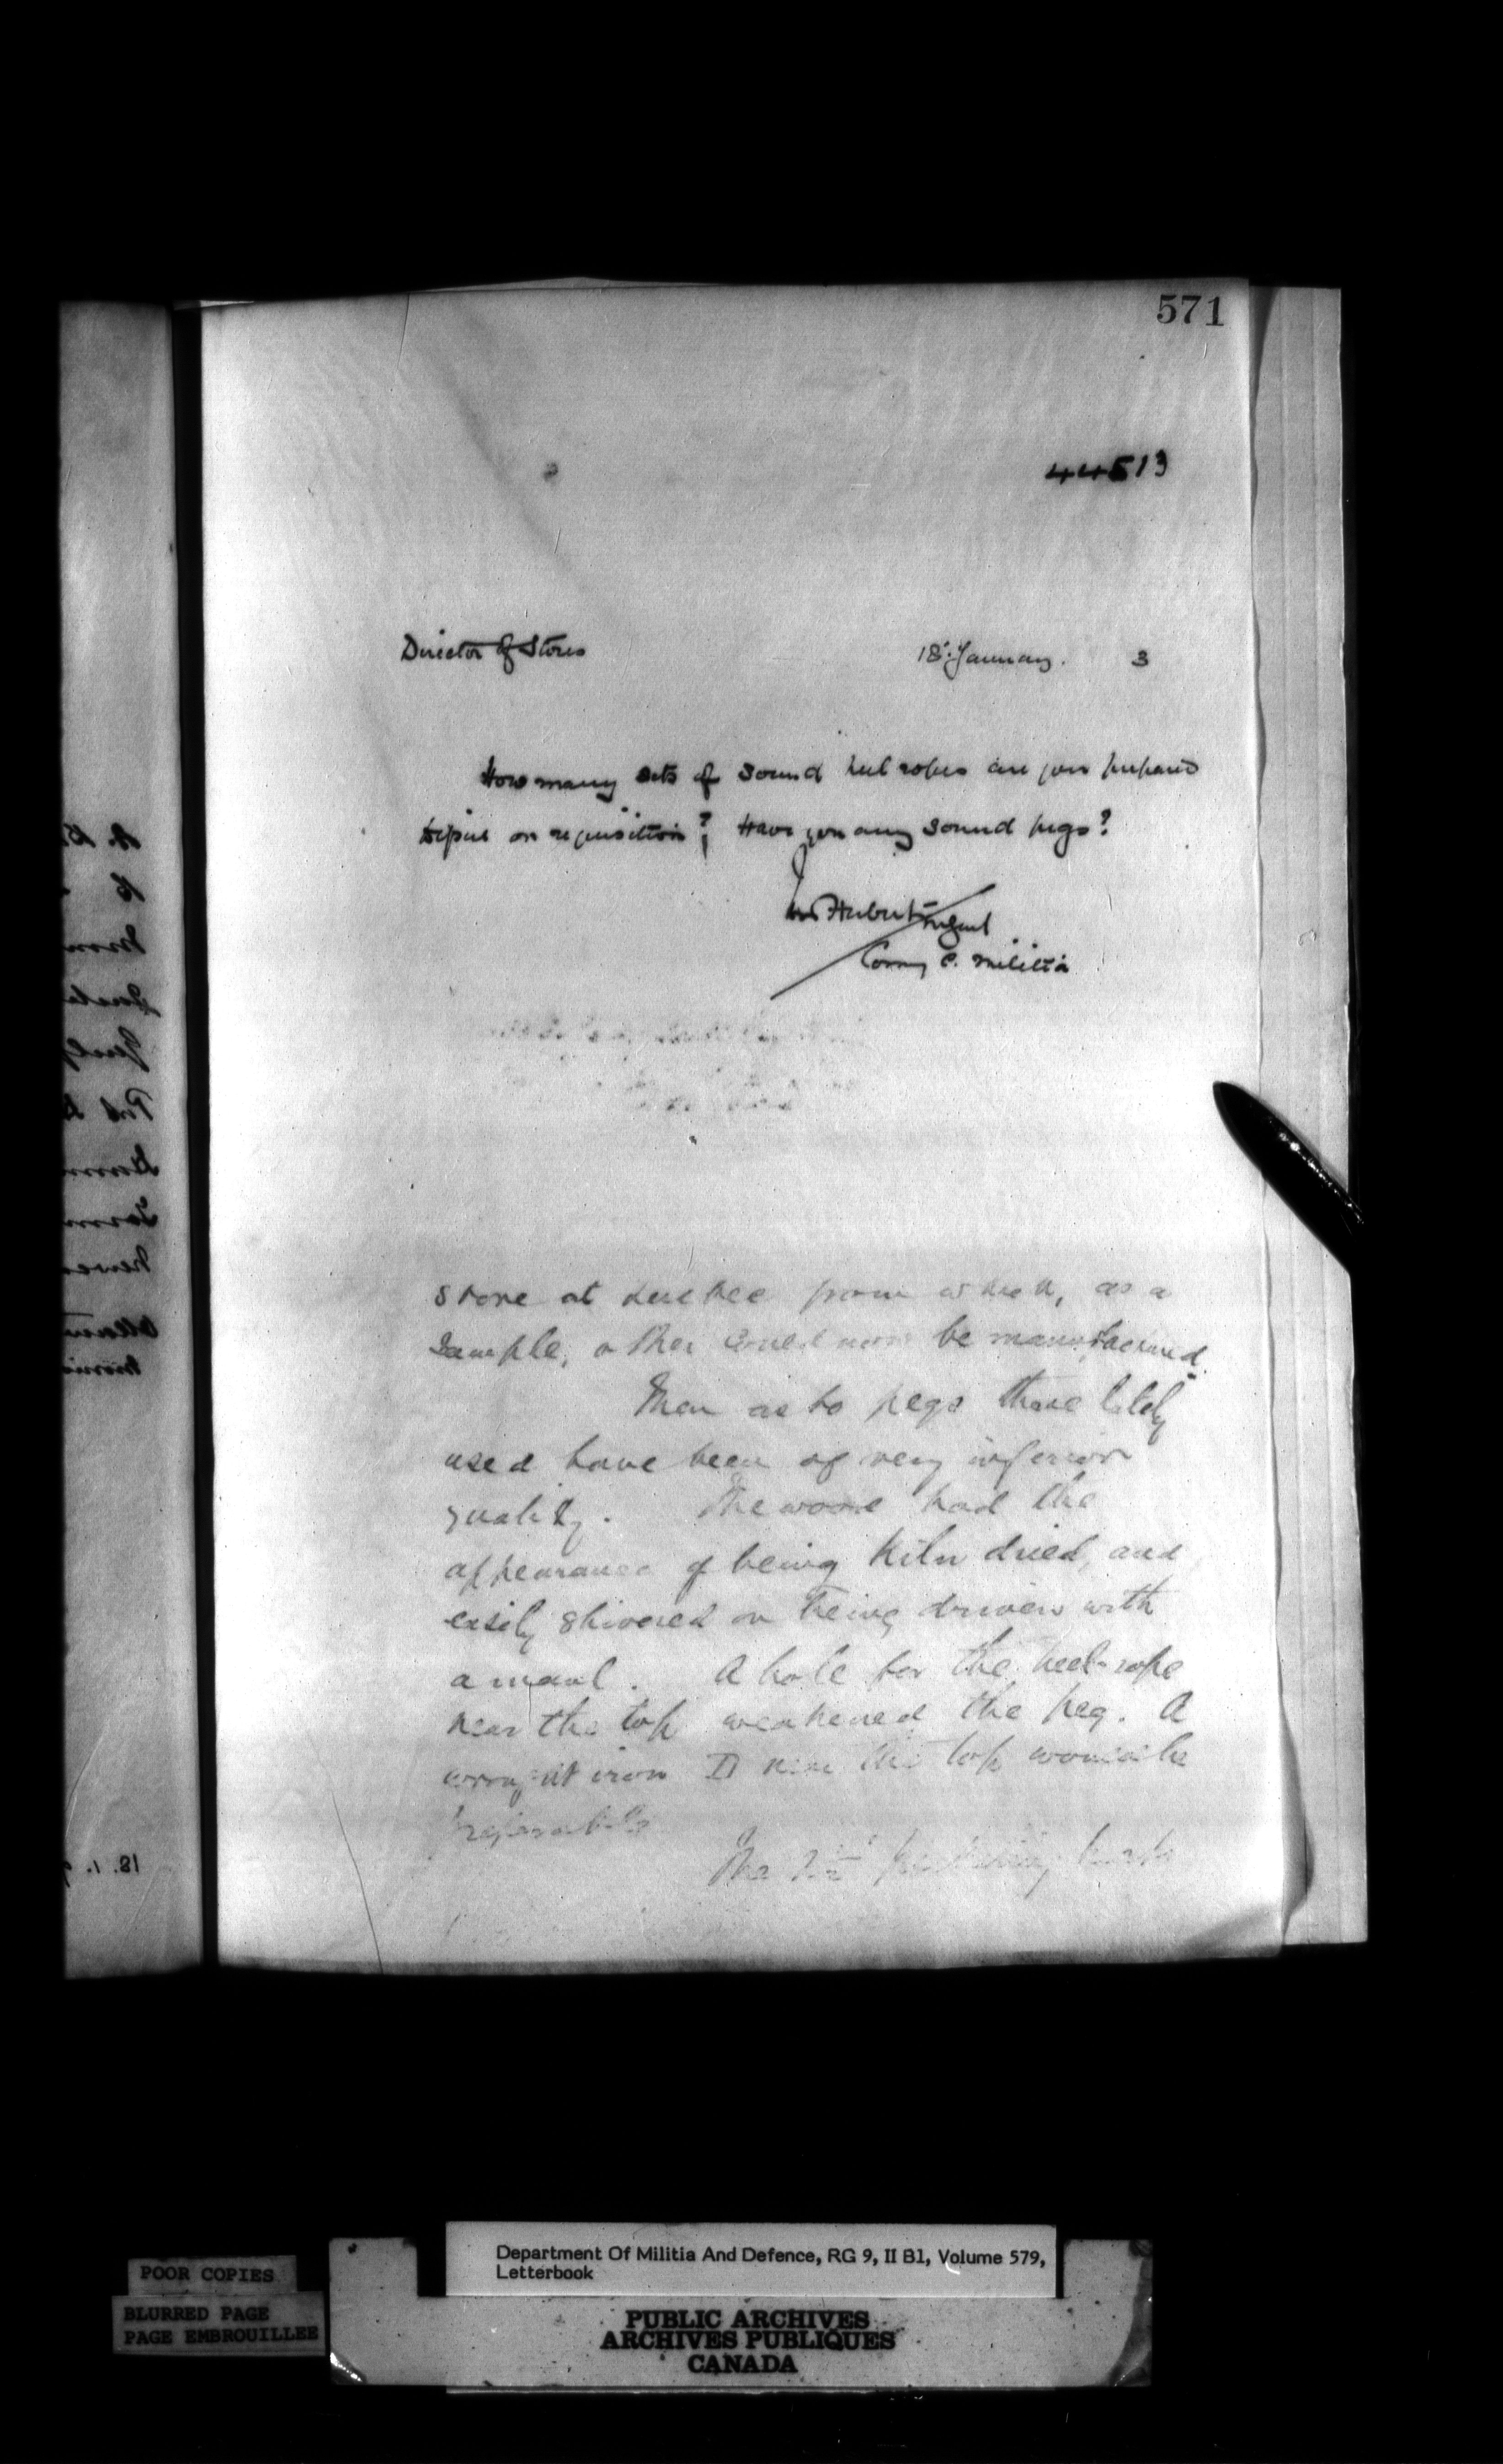 571
44513
Director of Stores
18th January. 3
How many sets of sound heel ropes are you prepared
to issue on requisition? Have you any sound pegs?
Comg C. Militia
store at Quebec from which, as a
sample, other could now be manufactured.
Then as to pegs those lately
used have been of very inferior
quality. The wood had the
appearance of being Kiln dried, and
easily shivered on being driven with
a maul. A hole for the heel-rope
near the top weakened the peg. A
wrought iron D near the top would be
preferable
The
18. 1.
POOR COPIES
BLURRED PAGE
PAGE EMBROUILLEE
Department Of Militia And Defence, RG 9, II B1, Volume 579,
Letterbook
PUBLIC ARCHIVES
ARCHIVES PUBLIQUES
CANADA